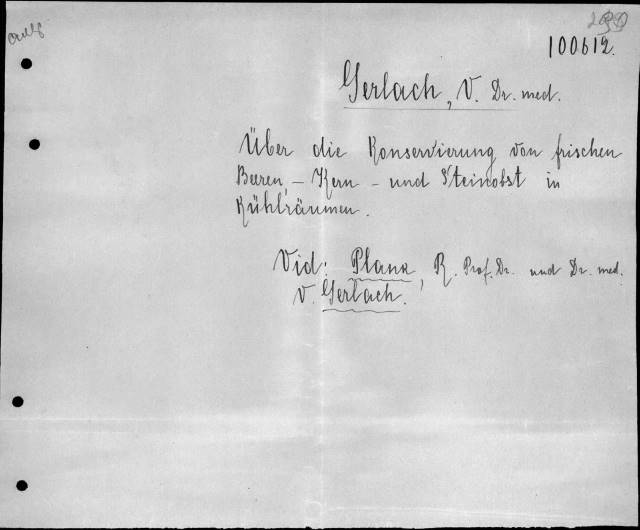 100612.
Gerlach, V. Dr. med.
Über die Konservierung von frischen
Beeren, - Kern - und Steinobst in
Kühlräumen.
Vid: Plank, R. Prof. Dr. und Dr. med.
V. Gerlach.